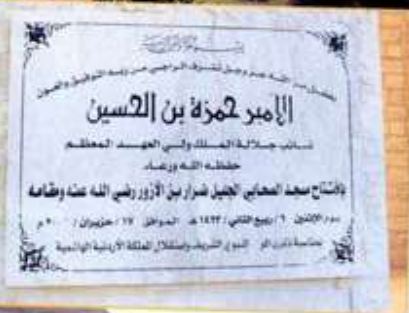 بسم الله الرحمن الرحيم
بفضل من الله عز وجل تشرف الراجي من ربه التوفيق والعون
الأمير حمزة بن الحسين
نائب جلالة الملك ولي العهد المعظم
حفظه الله ورعاه
بافتتاح مسجد الصحابي الجليل ضرار بن الأزور رضي الله عنه ومقامه
يوم الاثنين ٦ / ربيع الثاني / ١٤٢٣ هـ الموافق ١٧ / حزيران / م
النبوي الشريف واستقلال المملكة الأردنية الهاشمية